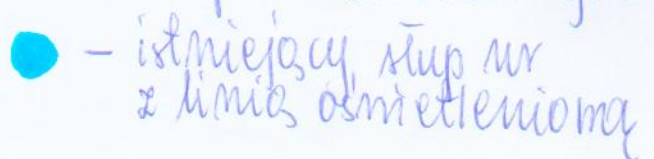 – istniejący słup nr
z linią oświetleniową